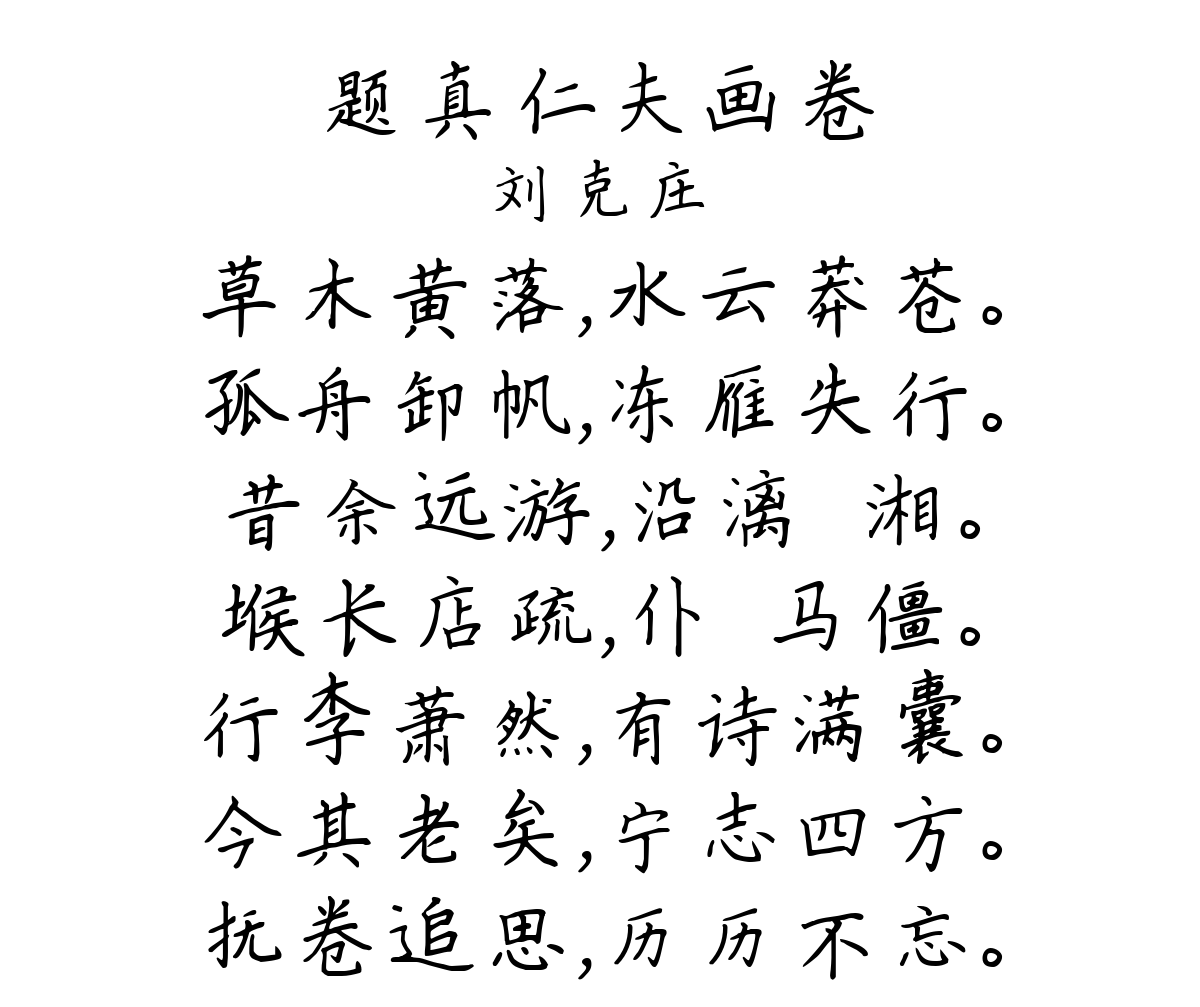 题真仁夫画卷
刘克庄
草木黄落,水云莽苍。
孤舟卸帆,冻雁失行。
昔余远游,沿漓 湘。
堠长店疏,仆 马僵。
行李萧然,有诗满囊。
今其老矣,宁志四方。
抚卷追思,历历不忘。